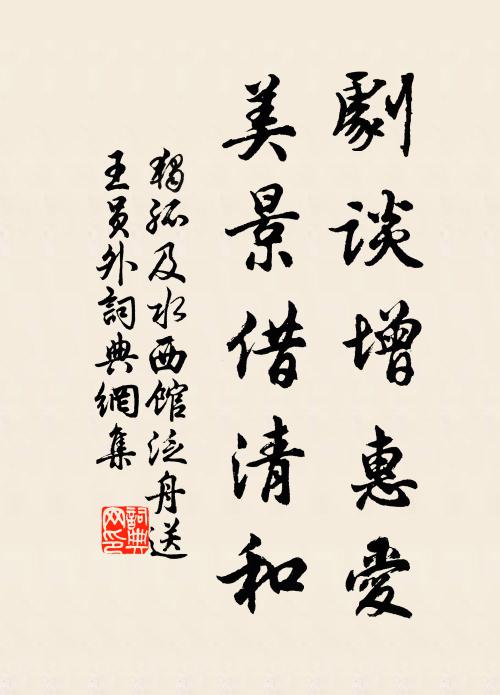 劇談增惠愛
美景借清和
獨孤及水西館泛舟送
王員外詞典網集
詞典
网印